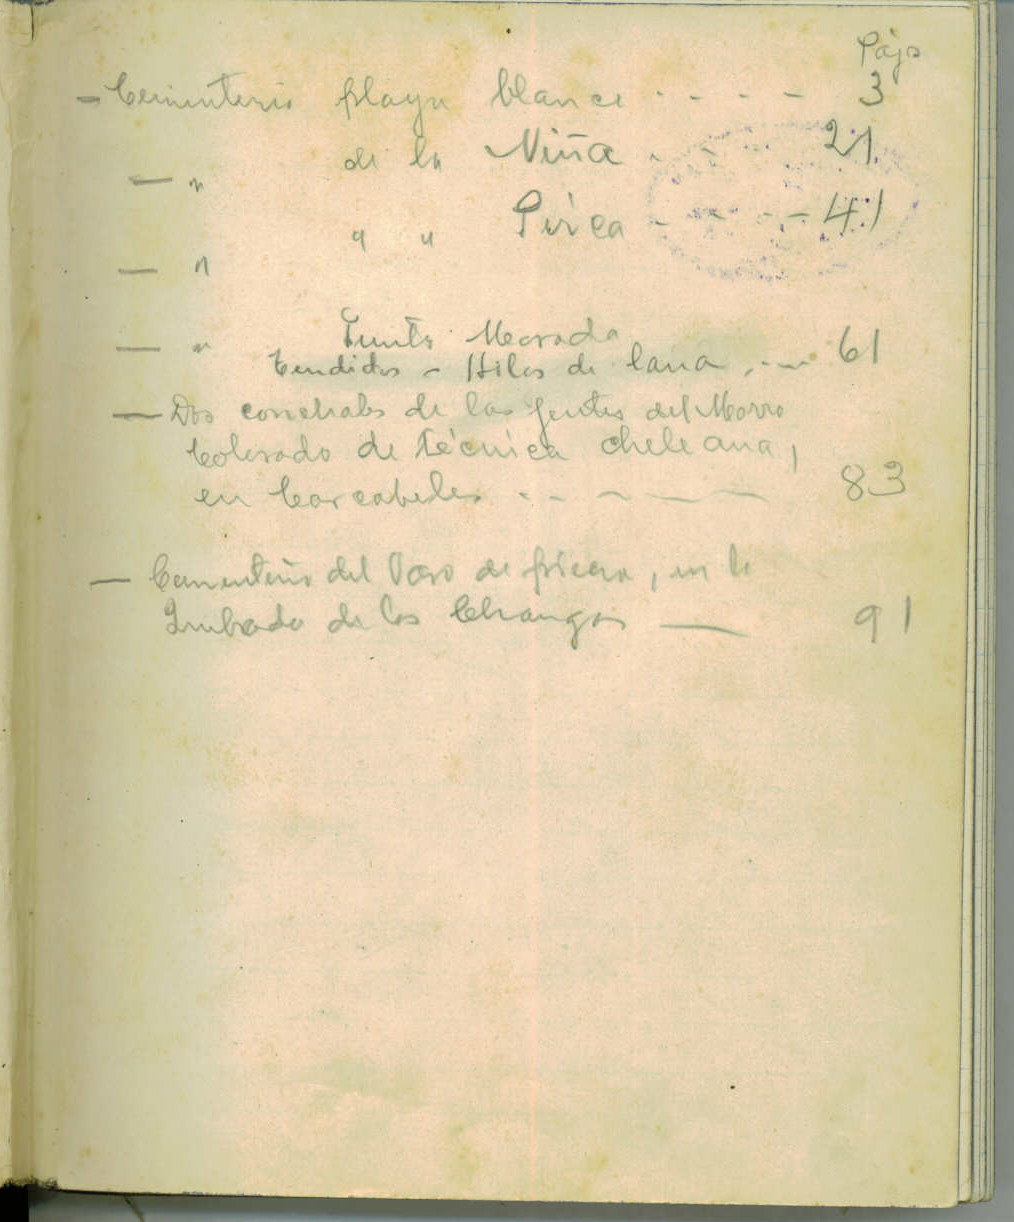 Págs
- Cementerio playa blanca - - - - 3
de la Niña - - 21
— "
" " Pirca - - - - 41
— "
— " Punta Morada
Tendidos - Hilos de lana, - — 61
— Dos conchales de las gentes del Morro
Colorado de técnica cheleana,
en Cascabeles - - - — — 83
— Cementerio del Vaso de , en la
Quebrada de los Changos — 91